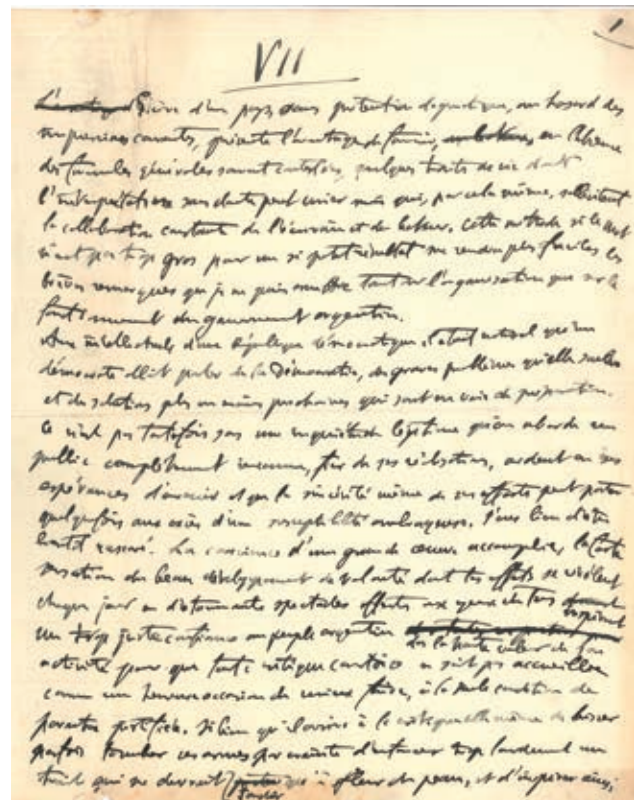 1
VII
L'avantage Écrire d'un pays, sans prétention dogmatique, au hasard des
impressions courantes, présente l'avantage de fournir, au lecteur, en l'absence
des formules générales souvent contestées, quelques traits de vie dont
l'interprétation sans doute peut varier mais qui, par cela même, sollicitent
la collaboration constante de l'écrivain et du lecteur. Cette méthode si le mot
n'est pas trop gros pour un si petit résultat me rendra plus faciles les
brèves remarques que je ne puis omettre tant sur l'organisation que sur le
fonctionnement du gouvernement argentin.
Aux intellectuels d'une République démocratique, il était naturel qu'un
démocrate allât parler de la Démocratie, des graves problèmes qu'elle soulève
et des solutions plus ou moins prochaines qui sont en voie de préparation.
Ce n'est pas toutefois sans une inquiétude légitime qu'on aborde un
public complètement inconnu, fier de ses réalisations, ardent en ses
espérances d'avenir et que la sincérité même de ses efforts peut porter
quelquefois aux excès d'une susceptibilité ombrageuse. J'eus lieu d'être
bientôt rassuré. La conscience d'une grande œuvre accomplie, la forte
sensation du beau développement de volonté dont les effets se révèlent
chaque jour en d'étonnants spectacles offerts aux yeux de tous inspirent
une trop juste confiance au peuple argentin dans la haute valeur de son
activité pour que toute critique courtoise ne soit pas accueillie
comme une heureuse occasion de mieux faire, à la seule condition de
paraître justifiée. Si bien qu'il arrive à la critique elle-même de laisser
parfois tomber ses armes par crainte d'enfoncer trop lourdement un
trait qui ne devrait toucher qu'à fleur de peau, et d'inspirer ainsi,